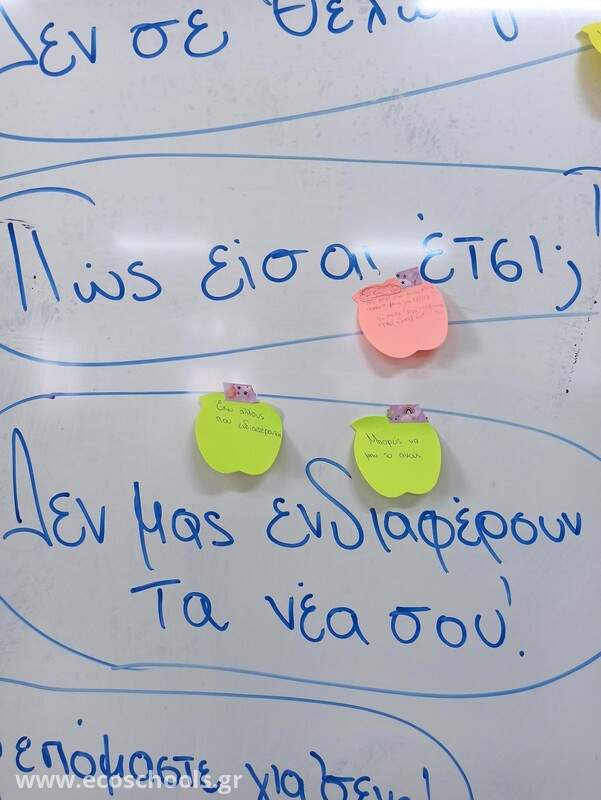 Δεν σε θέλω
Πώς είσαι έτσι;
Έχω άλλους
που ενδιαφέρονται
Μπορείς να
μην το ακούς
Δεν μας ενδιαφέρουν
τα νέα σου!
επόμαστε για σένα!
www.ecoschools.gr